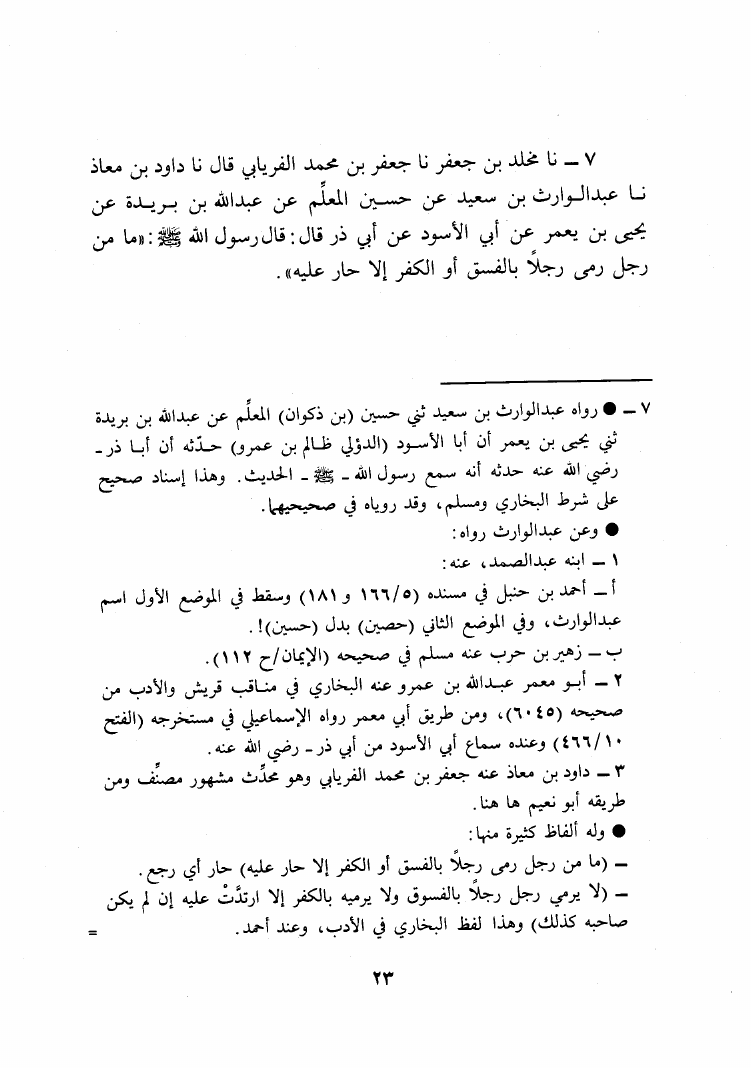 ٧ ــ نا مخلد بن جعفر نا جعفر بن محمد الفريابي قال نا داود بن معاذ
نـا عبدالـوارث بن سعيد عن حسـين المعلِّم عن عبدالله بن بـريـدة عن
يحيى بن يعمر عن أبي الأسود عن أبي ذر قال: قال رسول الله ﷺ: «ما من
رجل رمى رجلاً بالفسق أو الكفر إلا حار عليه».
٧ ــ ● رواه عبدالوارث بن سعيد ثني حسين (بن ذكوان) المعلِّم عن عبدالله بن بريدة
ثني يحيى بن يعمر أن أبا الأسـود (الدؤلي ظـالم بن عمرو) حـدّثه أن أبـا ذر ـ
رضي الله عنه حدثه أنه سمع رسول الله ـ ﷺ ـ الحديث. وهذا إسناد صحيح
على شرط البخاري ومسلم، وقد روياه في صحيحيهما.
● وعن عبدالوارث رواه:
١ ــ ابنه عبدالصمد، عنه:
أ ــ أحمد بن حنبل في مسنده (١٦٦/٥ و ١٨١) وسقط في الموضع الأول اسم
عبدالوارث، وفي الموضع الثاني (حصين) بدل (حسين)!.
ب ــ زهير بن حرب عنه مسلم في صحيحه (الإيمان/ح ١١٢).
٢ ــ أبـو معمر عبـدالله بن عمرو عنه البخاري في منـاقب قريش والأدب من
صحيحه (٦٠٤٥)، ومن طريق أبي معمر رواه الإسماعيلي في مستخرجه (الفتح
٤٦٦/١٠) وعنده سماع أبي الأسود من أبي ذر ـ رضي الله عنه.
٣ ــ داود بن معاذ عنه جعفر بن محمد الفريابي وهو محدِّث مشهور مصنِّف ومن
طريقه أبو نعيم ها هنا.
● وله ألفاظ كثيرة منها:
ــ (ما من رجل رمى رجلاً بالفسق أو الكفر إلا حار عليه) حار أي رجع.
ــ (لا يرمي رجل رجلاً بالفسوق ولا يرميه بالكفر إلا ارتدَّتْ عليه إن لم يكن
صاحبه كذلك) وهذا لفظ البخاري في الأدب، وعند أحمد. =
٢٣